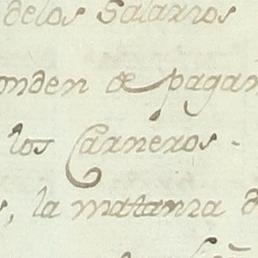 delos Salarios
onden de pagar
los Carneros -
, la matanza d